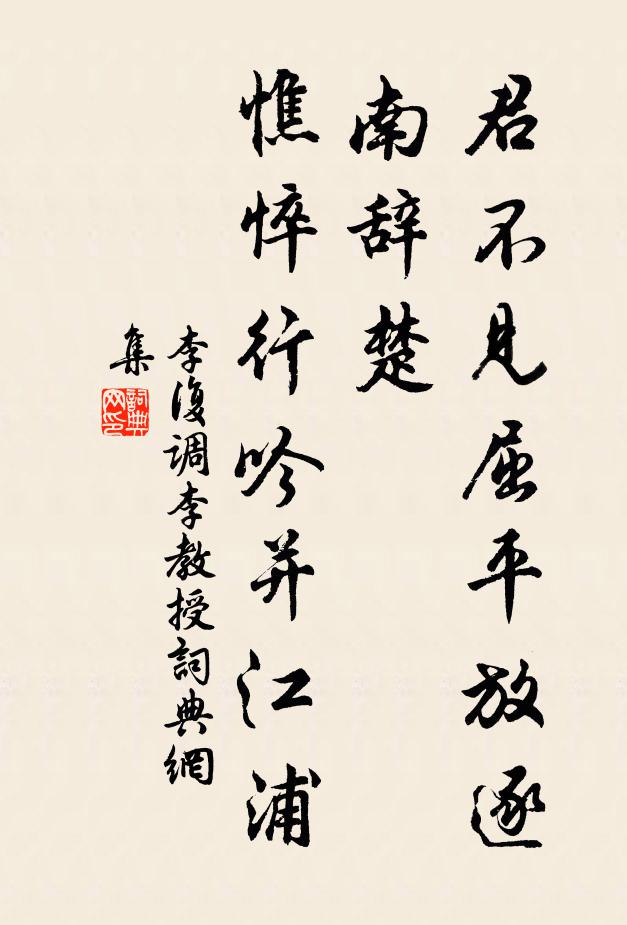 君不见屈平放逐
南辞楚
憔悴行吟并江浦
李復调李教授詞典網
集
詞典网印